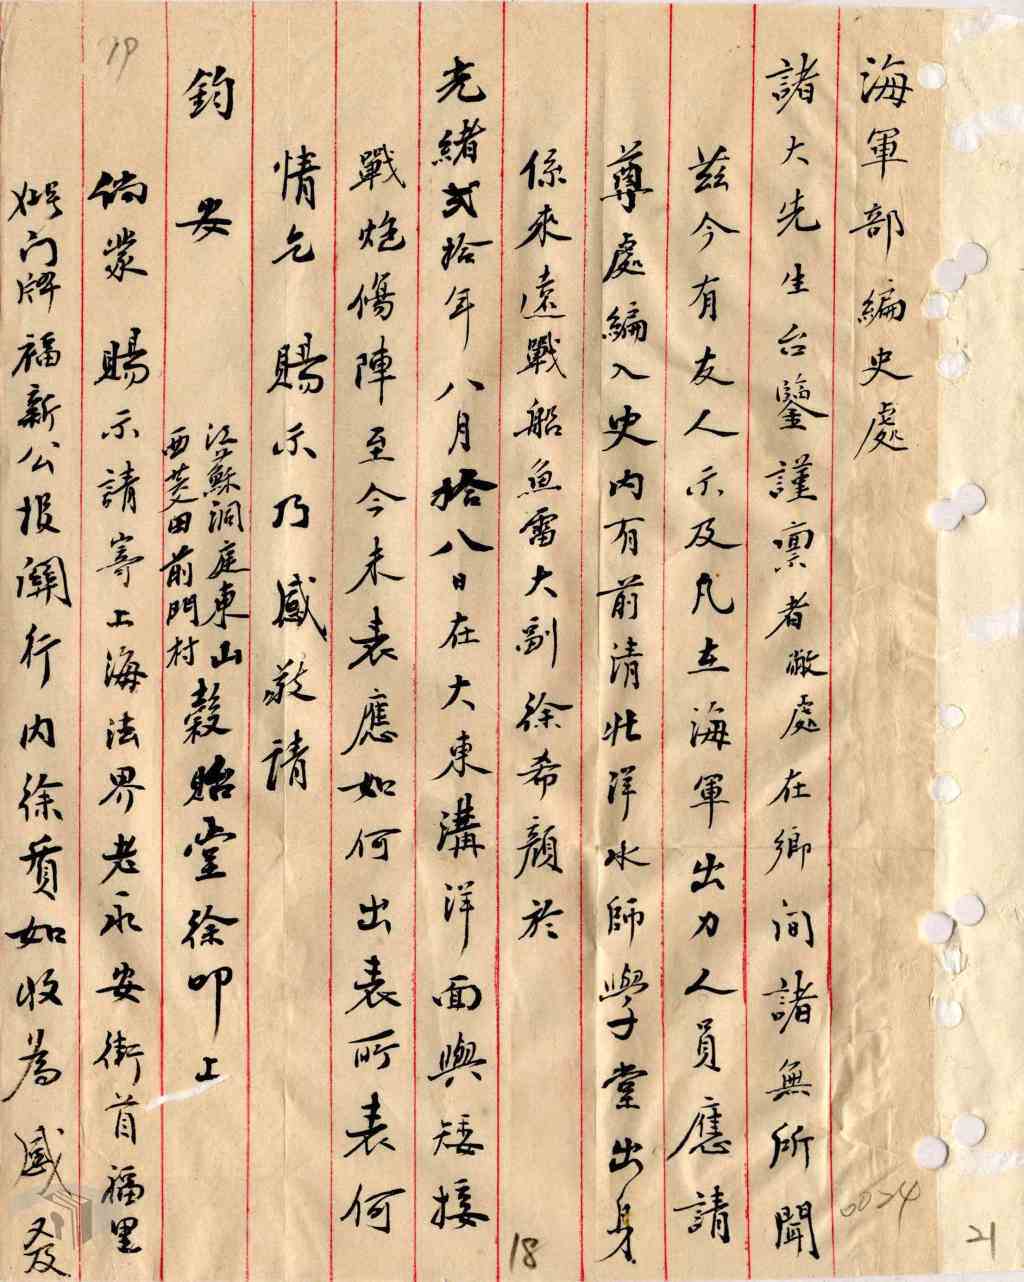 海軍部編史處
諸大先生台鑒謹禀者敝處在鄉间諸無所聞
茲今有友人示及凡在海軍出力人員應請
尊處編入史内有前清北洋水師學堂出身
係來遠戰船魚雷大副徐希顏於
光緒弍拾年八月拾八日在大東溝洋面與矮接
戰炮傷陣至今未表應如何出表所表何
情乞賜示乃感敬請
鈞安
江蘇洞庭東山
西菱田前門村
穀貽堂徐叩上
倘蒙賜示請寄上海法界老永安街首福里
門牌福新公报關行内徐質如收為感又及
19
18
0024
21